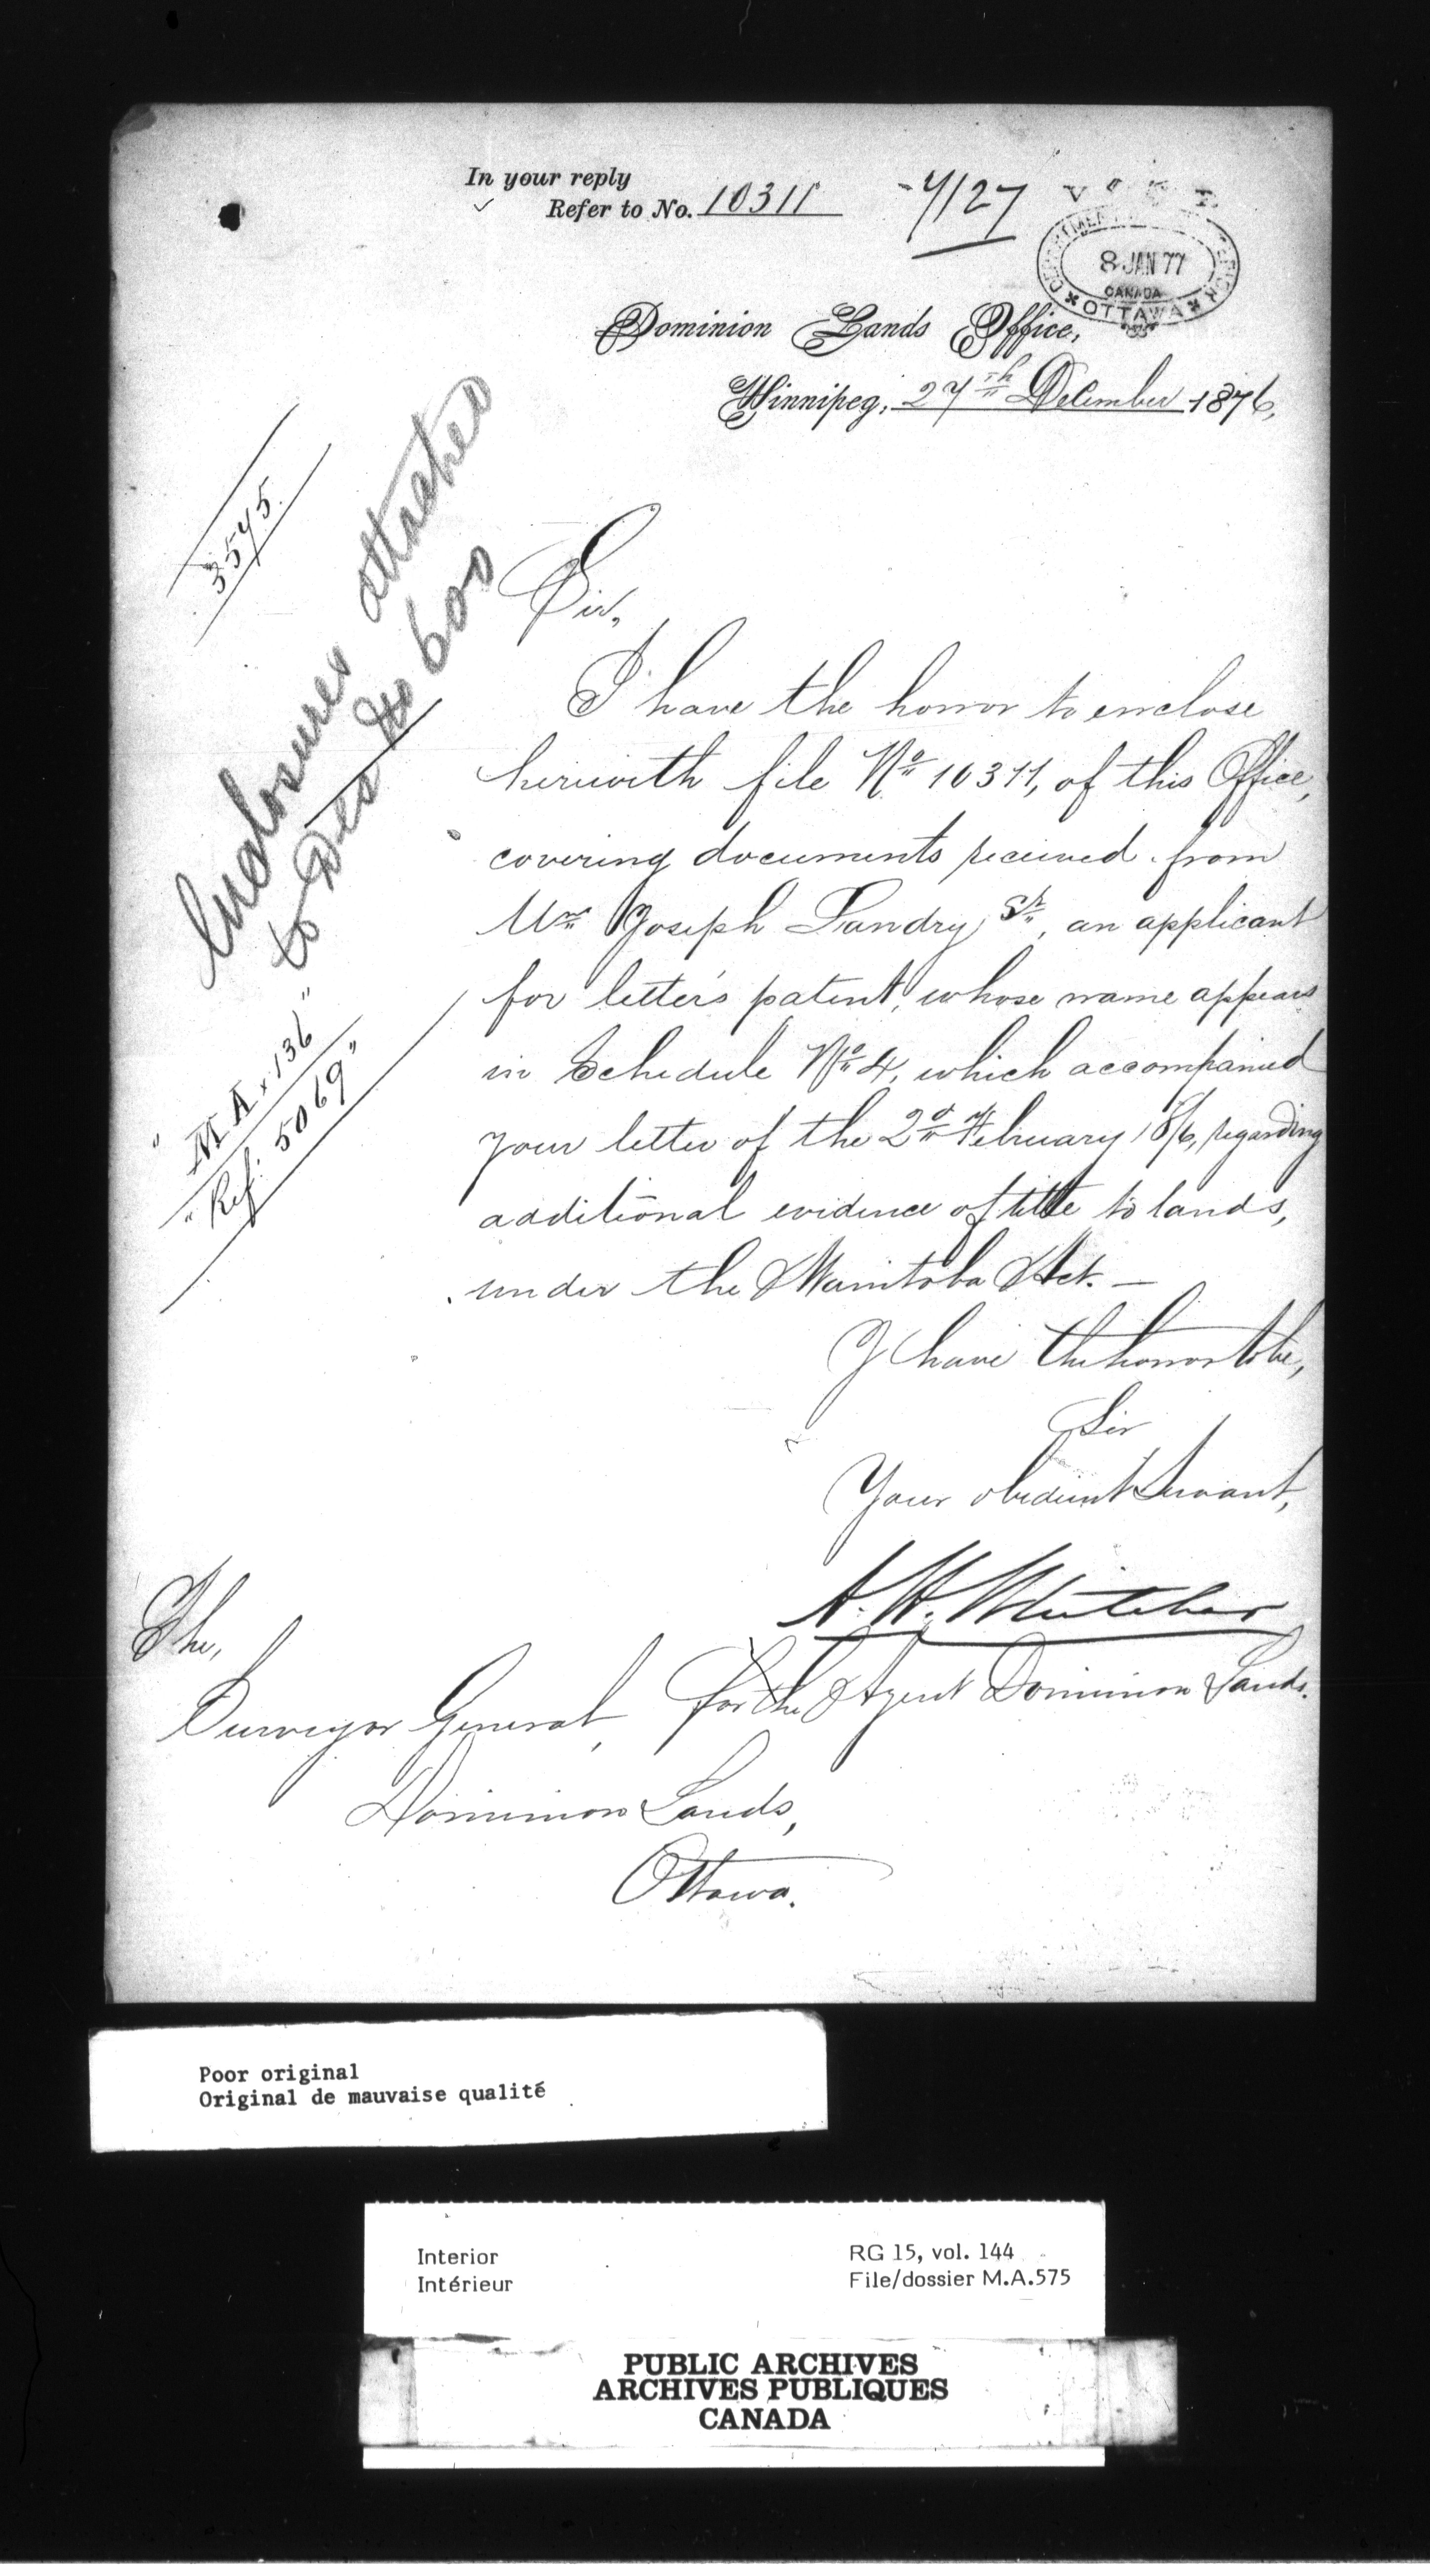 In your reply
Refer to No. 10311
7/27
DEPARTMENT INTERIOR
8 JAN 77
CANADA
OTTAWA
Dominion Lands Office,
Winnipeg, 27th December 1876,
3545.
Inclosures attached
to Des No 600
"M A. 136"
"Ref: 5069"
Sir,
I have the honor to enclose
herewith file No 10311, of this Office,
covering documents received from
Mr Joseph Landry Sr, an applicant
for letter's patent, whose name appears
in Schedule No 4, which accompanied
your letter of the 2d February 1876, regarding
additional evidence of title to lands,
under the Manitoba Act. —
I have the honor to be,
Sir
Your obedient Servant,
A. H. Whitcher
For the Agent Dominion Lands.
The,
Surveyor General,
Dominion Lands,
Ottawa.
Poor original
Original de mauvaise qualité
Interior
Intérieur
RG 15, vol. 144
File/dossier M.A.575
PUBLIC ARCHIVES
ARCHIVES PUBLIQUES
CANADA